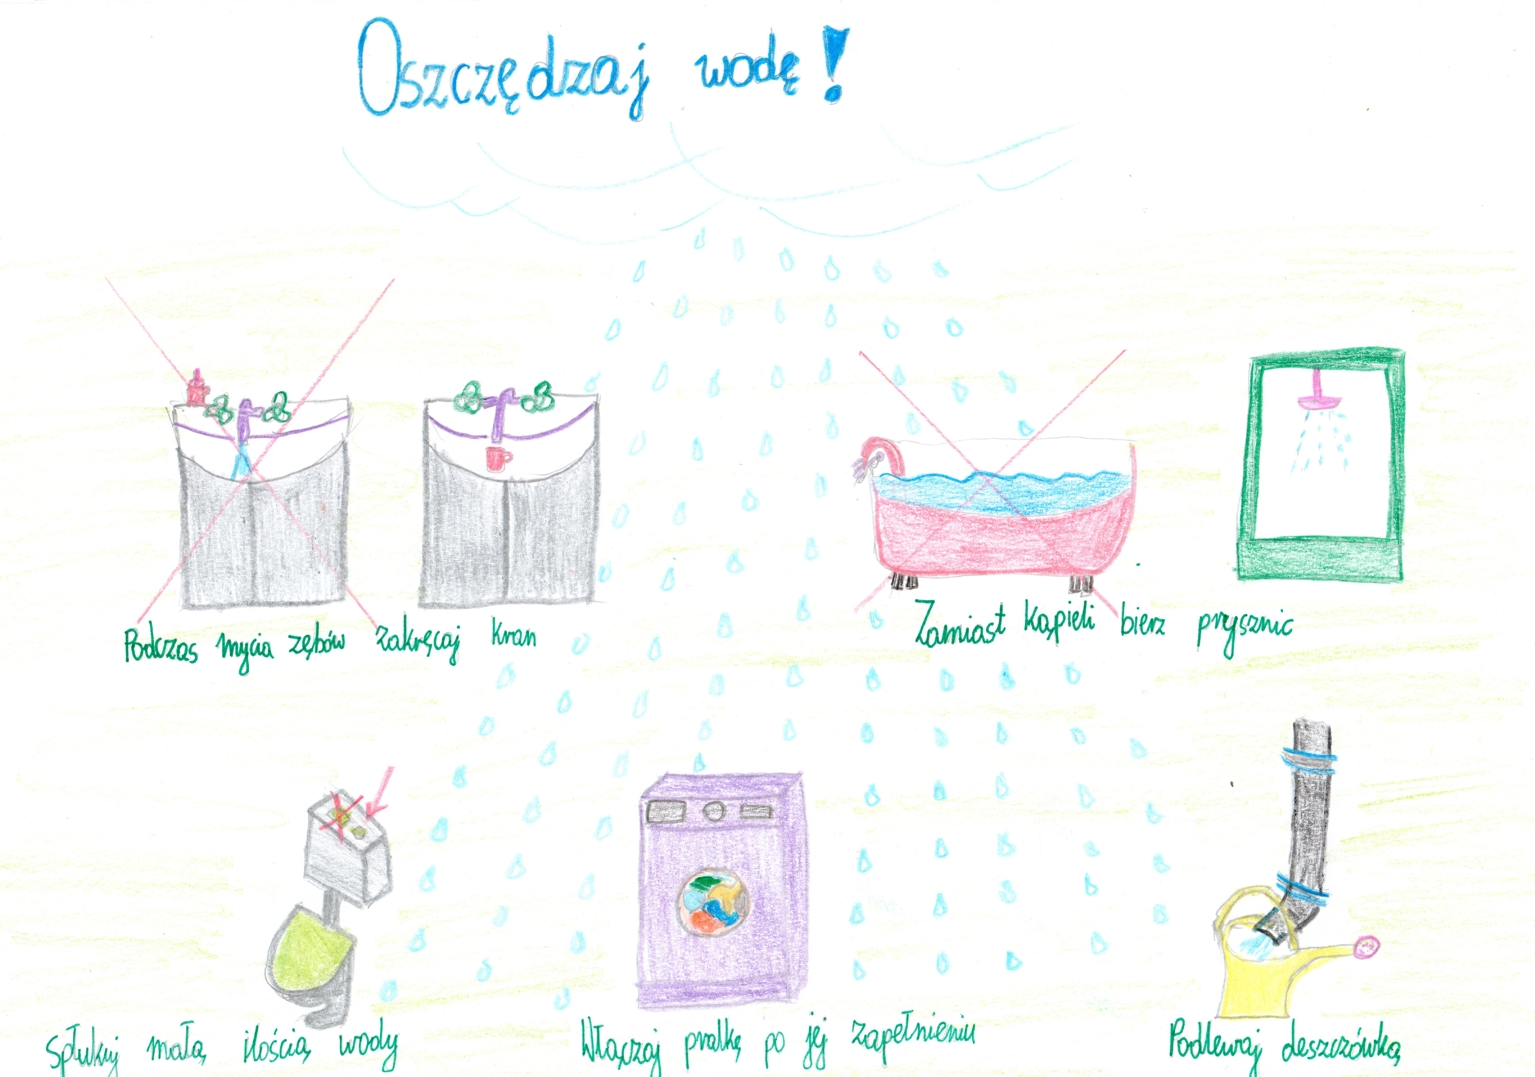 Oszczędzaj wodę!
Podczas mycia zębów zakręcaj kran
Zamiast kąpieli bierz prysznic
Spłukuj małą ilością wody
Włączaj pralkę po jej zapełnieniu
Podlewaj deszczówką